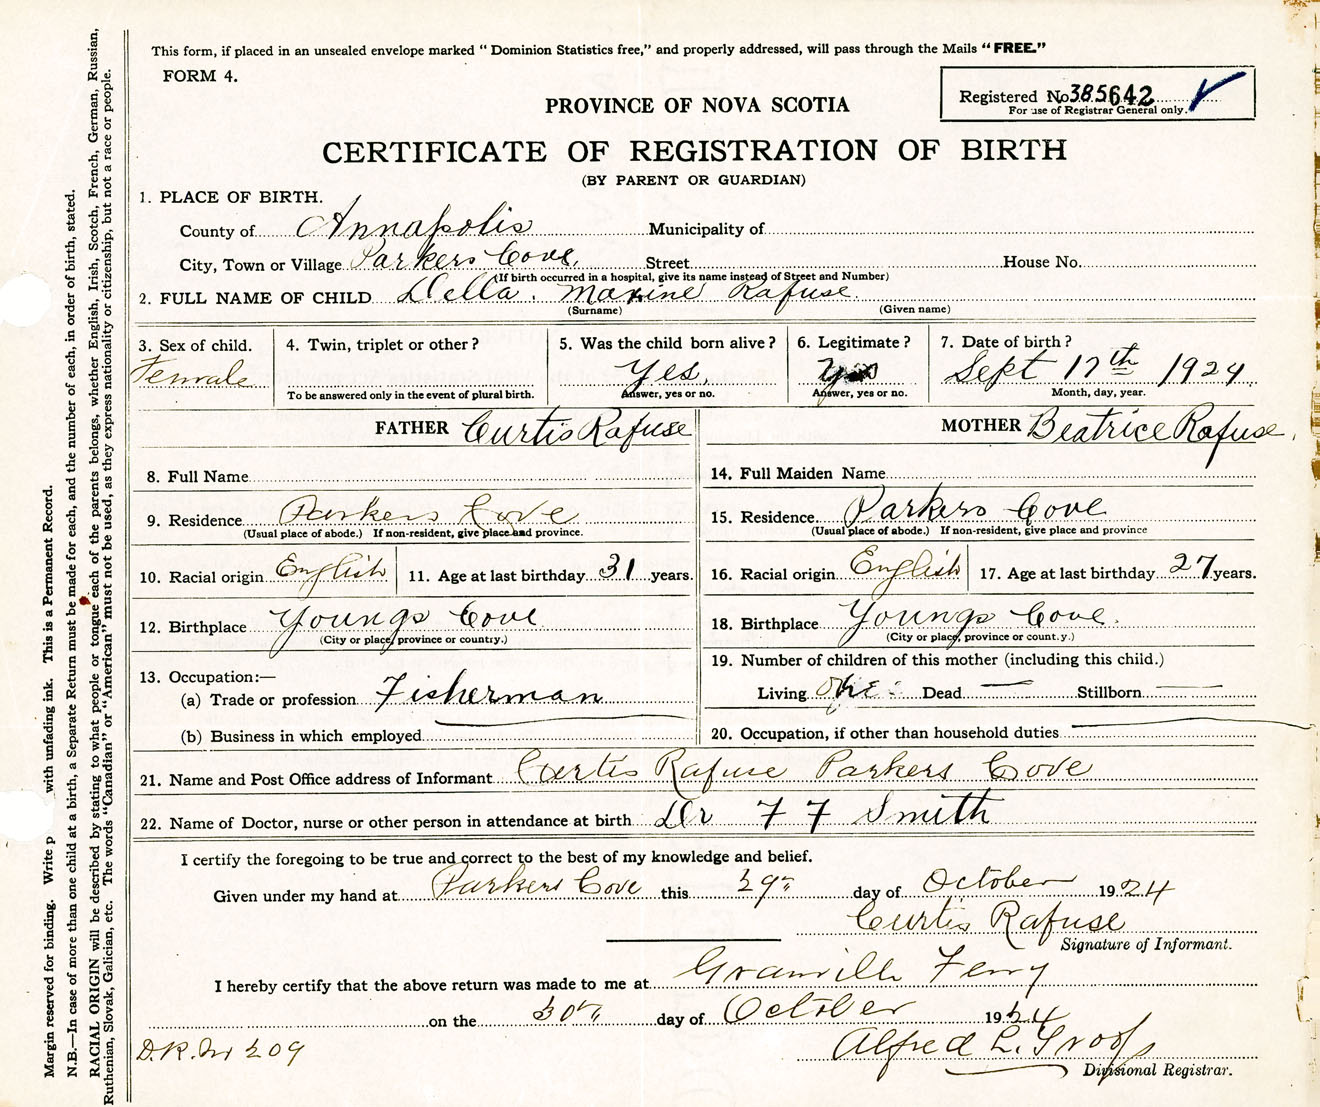 This form, if placed in an unsealed envelope marked “ Dominion Statistics free,” and properly addressed, will pass through the Mails “ FREE.”
FORM 4.
Registered No. 385642
For use of Registrar General only.
PROVINCE OF NOVA SCOTIA
CERTIFICATE OF REGISTRATION OF BIRTH
(BY PARENT OR GUARDIAN)
1. PLACE OF BIRTH.
County of Annapolis Municipality of
City, Town or Village Parkers Cove, Street House No.
(If birth occurred in a hospital, give its name instead of Street and Number)
2. FULL NAME OF CHILD Della. Maxine Rafuse.
(Surname) (Given name)
3. Sex of child. Female
4. Twin, triplet or other ?
To be answered only in the event of plural birth.
5. Was the child born alive ? Yes,
Answer, yes or no.
6. Legitimate ? Yes
Answer, yes or no.
7. Date of birth ? Sept 17th 1924.
Month, day, year.
FATHER Curtis Rafuse
8. Full Name
9. Residence Parkers Cove
(Usual place of abode.) If non-resident, give place and province.
10. Racial origin English 11. Age at last birthday 31 years.
12. Birthplace Youngs Cove
(City or place, province or country.)
13. Occupation:—
(a) Trade or profession Fisherman
(b) Business in which employed
MOTHER Beatrice Rafuse,
14. Full Maiden Name
15. Residence Parkers Cove
(Usual place of abode.) If non-resident, give place and province
16. Racial origin English 17. Age at last birthday 27 years.
18. Birthplace Youngs Cove.
(City or place, province or count.y.)
19. Number of children of this mother (including this child.)
Living One Dead — Stillborn —
20. Occupation, if other than household duties
21. Name and Post Office address of Informant Curtis Rafuse Parkers Cove
22. Name of Doctor, nurse or other person in attendance at birth Dr F F Smith
I certify the foregoing to be true and correct to the best of my knowledge and belief.
Given under my hand at Parkers Cove this 29" day of October 1924
Curtis Rafuse
Signature of Informant.
I hereby certify that the above return was made to me at Granville Ferry
on the 30th day of October 1924
D.R. No 209
Alfred L. Troop
Divisional Registrar.
Margin reserved for binding. Write p with unfading ink. This is a Permanent Record.
N.B.—In case of more than one child at a birth, a Separate Return must be made for each, and the number of each, in order of birth, stated.
RACIAL ORIGIN will be described by stating to what people or tongue each of the parents belongs, whether English, Irish, Scotch, French, German, Russian,
Ruthenian, Slovak, Galician, etc. The words “Canadian” or “American” must not be used, as they express nationality or citizenship, but not a race or people.